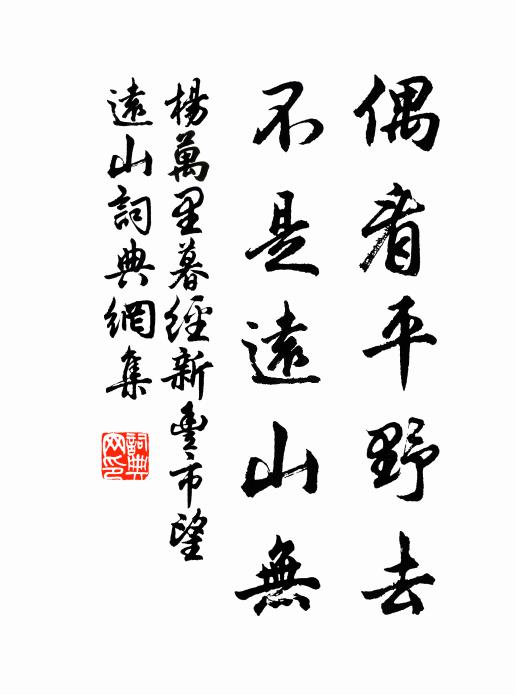 偶看平野去
不是遠山無
楊萬里暮經新豐市望
遠山詞典網集
詞典
网印